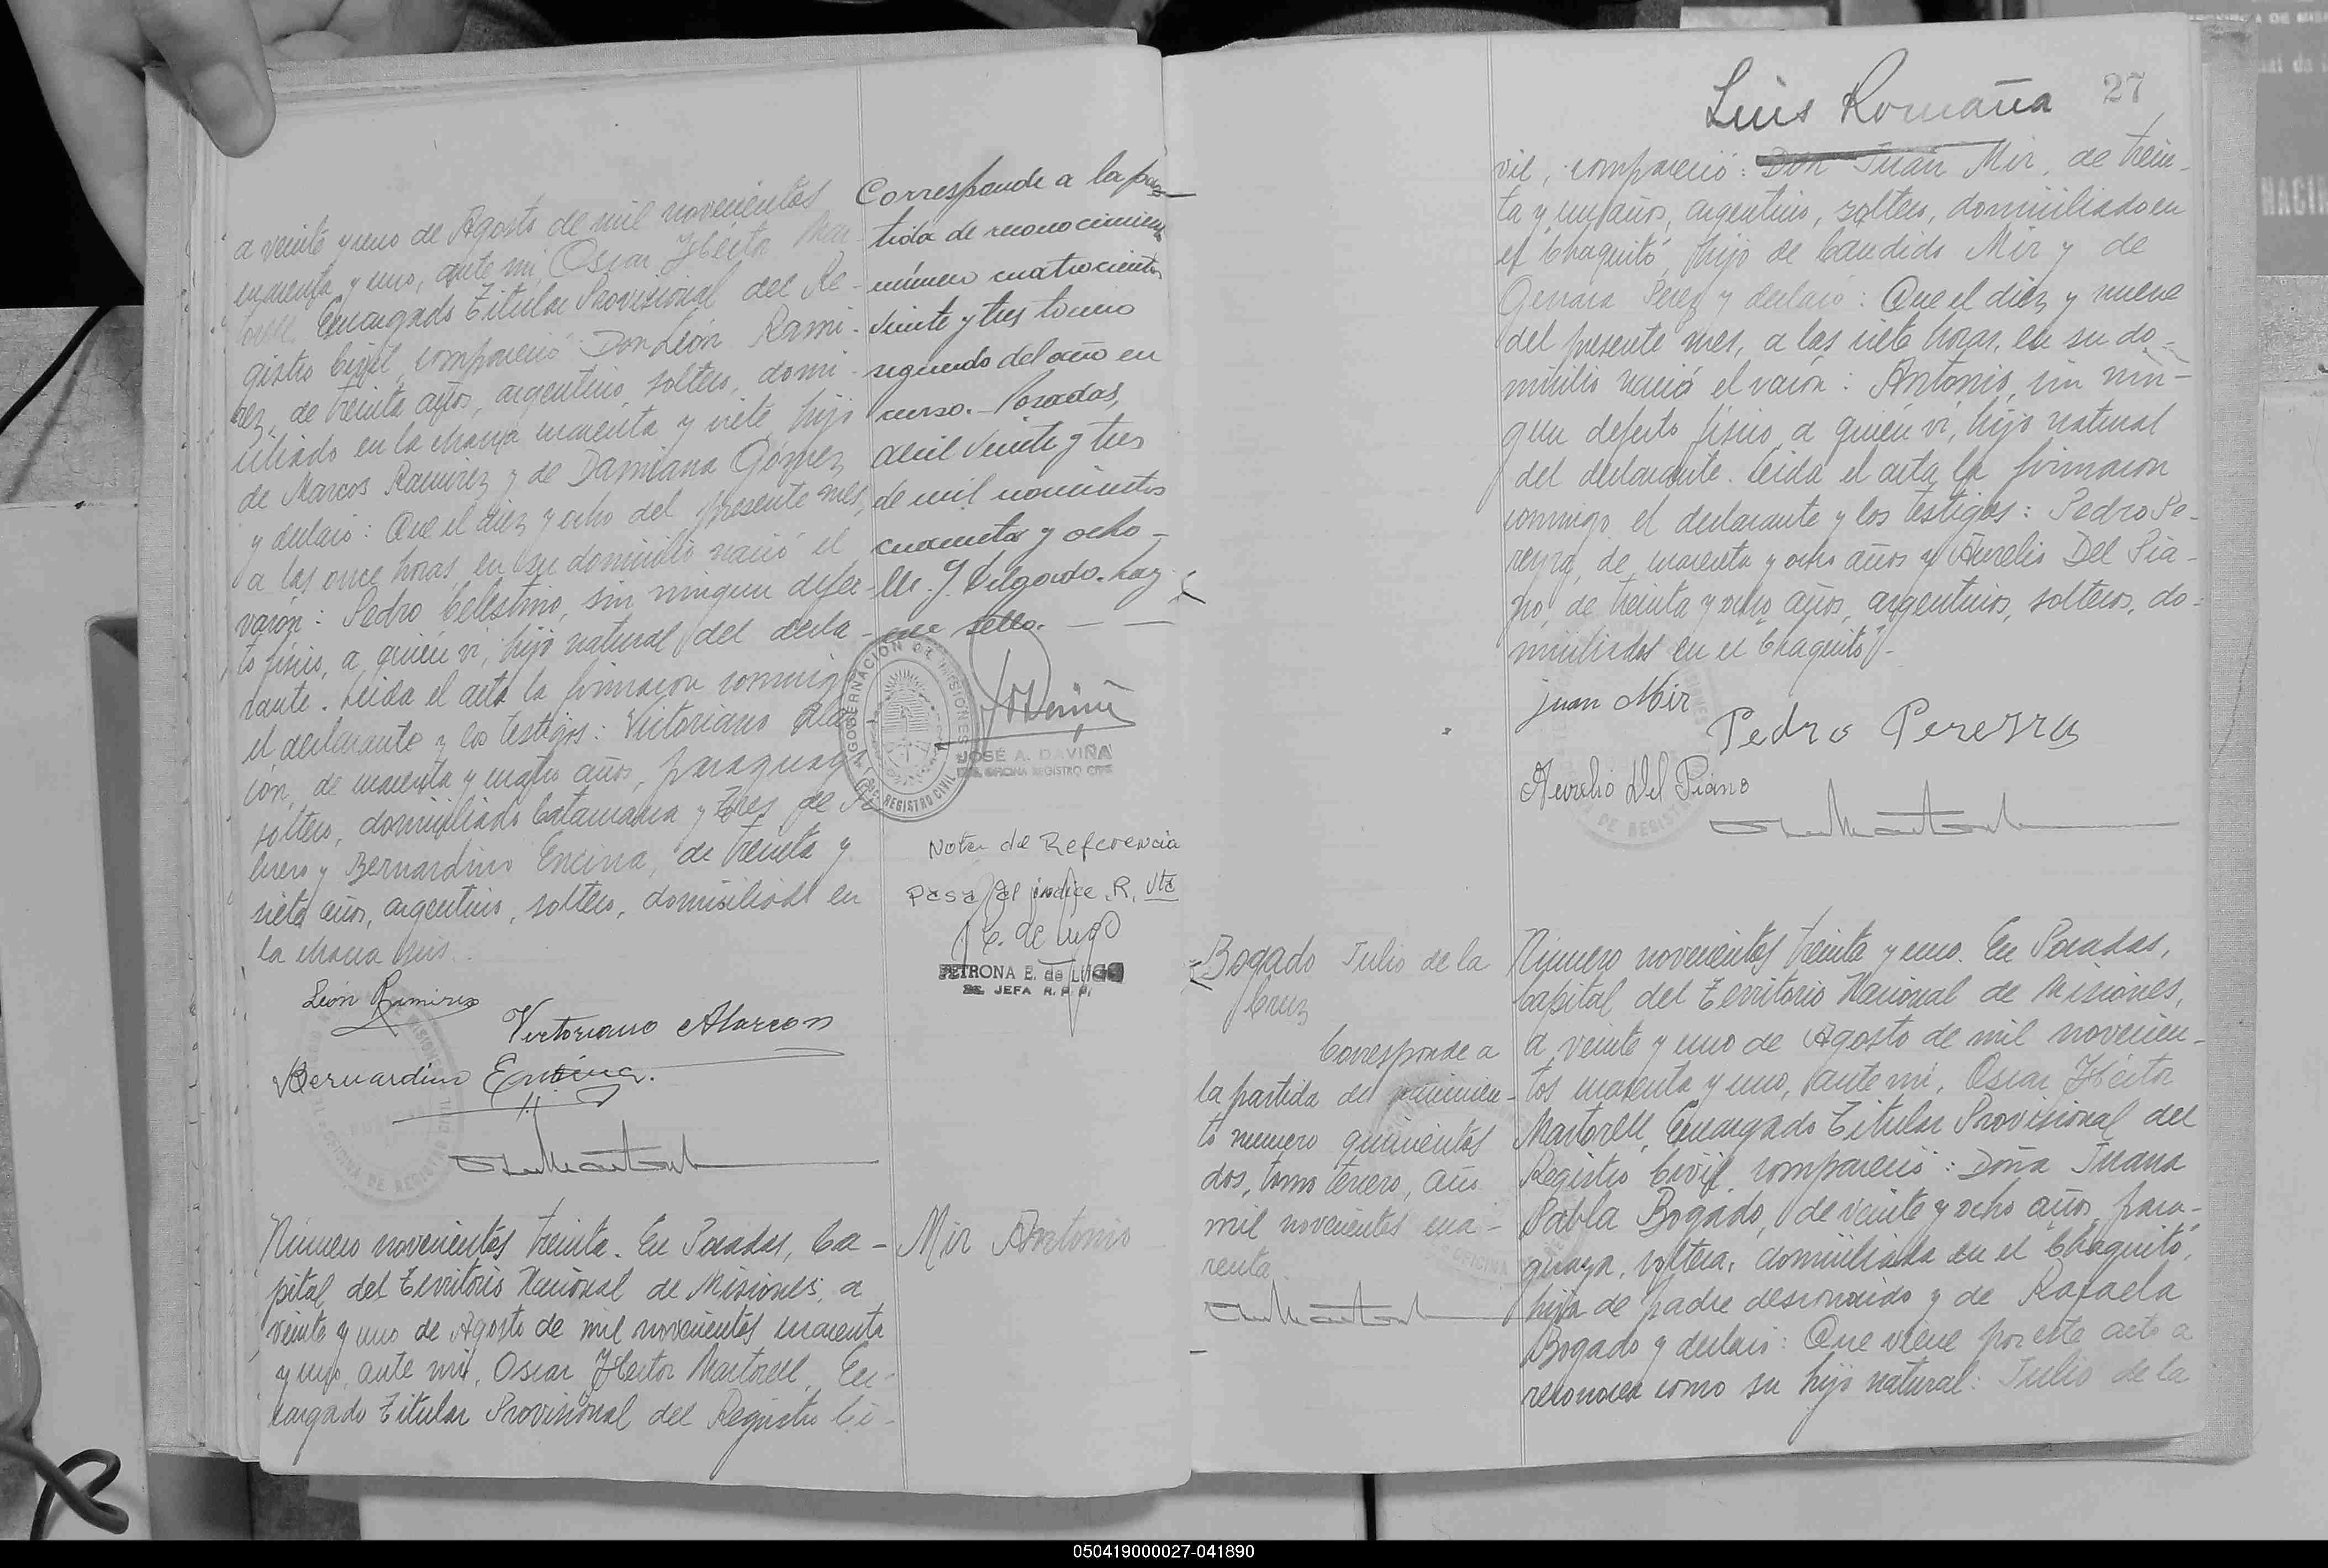 a veinte y uno de Agosto de mil novecientos
cuarenta y uno, ante mi, Oscar Héctor Mar-
torell, Encargado Titular Provisional del Re-
gistro Civil, compareció: Don León Rami-
rez, de treinta años, argentino, soltero, domi-
ciliado en la chacra cuarenta y siete, hijo
de Marcos Ramirez y de Damiana Gómez
y declaró: Que el diez y ocho del presente mes,
a las once horas, en su domicilio nació el
varón: Pedro Celestino, sin ningun defec-
to físico, a quién vi, hijo natural del decla-
rante. Leida el acta la firmaron conmigo
el declarante y los testigos: Victoriano Alar
cón, de cuarenta y cuatro años, paraguayo
soltero, domiciliado Catamarca y Tres de Fe
brero y Bernardino Encina, de treinta y
siete años, argentino, soltero, domiciliado en
la chacra seis.
León Ramirez
Victoriano Alarcon
Bernardino Encina.
Corresponde a la par-
tida de reconocimien
número cuatrocientos
veinte y tres tomo
segundo del año en
curso.- Posadas,
abril veinte y tres
de mil novecientos
cuarenta y ocho -
J. Delgado. hay
un sello.
GOBERNACION DE MISIONES
REGISTRO CIVIL
JOSÉ A. DAVIÑA
OFICINA REGISTRO CIVIL
Nota de Referencia
Pasa al indice R. Vta
E. de Lugo
PETRONA E. de LUGO
JEFA R. P. P.
Número novecientos treinta. En Posadas, Ca-
pital del Territorio Nacional de Misiones, a
veinte y uno de Agosto de mil novecientos cuarenta
y uno, ante mi, Oscar Héctor Martorell, En-
cargado Titular Provisional del Registro Ci-
Mir Antonio
Luis Romaña
27
vil, compareció: Don Juan Mir, de trein-
ta y un años, argentino, soltero, domiciliado en
el Chaquito, hijo de Candido Mir y de
Genara Perez y declaró: Que el diez y nueve
del presente mes, a las siete horas, en su do-
micilio nació el varón: Antonio, sin nin-
gun defecto físico, a quién vi, hijo natural
del declarante. Leida el acta la firmaron
conmigo el declarante y los testigos: Pedro Pe-
reyra, de cuarenta y ocho años y Aurelio Del Pia-
no, de treinta y ocho años, argentinos, solteros, do-
miciliados en el Chaquito.-
Juan Mir
Pedro Pereyra
Aurelio Del Piano
Bogado Julio de la
Cruz
Corresponde a
la partida de nacimien-
to numero quinientos
dos, tomo tercero, año
mil novecientos cua-
renta
Número novecientos treinta y uno. En Posadas,
Capital del Territorio Nacional de Misiones,
a veinte y uno de Agosto de mil novecien-
tos cuarenta y uno, ante mi, Oscar Héctor
Martorell, Encargado Titular Provisional del
Registro Civil, compareció: Doña Juana
Pabla Bogado, de veinte y ocho años, para-
guaya, soltera, domiciliada en el Chaquito,
hija de padre desconocido y de Rafaela
Bogado y declaró: Que viene por este acto a
reconocer como su hijo natural: Julio de la
050419000027-041890